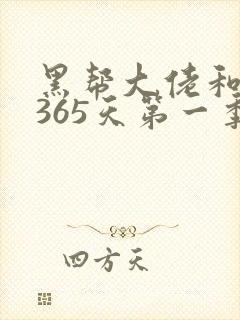 黑帮大佬和
365天第一季
四方天